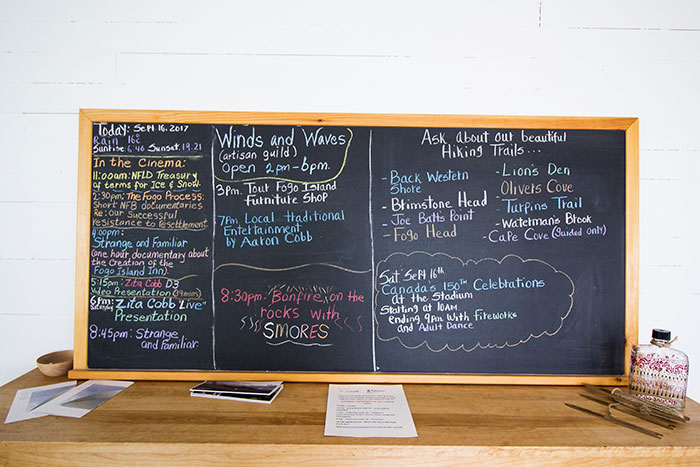 Today: Sept 16. 2017
Rain 16°
Sunrise 6:46 Sunset: 19:21
In the Cinema:
11:00am: NFLD Treasury
of terms for Ice & Snow.
2:30pm: The Fogo Process:
Short NFB documentaries
Re: our Successful
resistance to Resettlement
4:00pm:
Strange and Familiar
(one hour documentary about
the Creation of the
Fogo Island Inn)
5:15pm: Zita Cobb D3
Video Presentation
6pm: Zita Cobb "Live"
Presentation
8:45pm: Strange
and familiar.
Winds and Waves
(artisan guild)
Open 2pm-6pm.
3pm: Tour Fogo Island
furniture Shop
7pm Local traditional
Entertainment
by Aaron Cobb
8:30pm: Bonfire on the
rocks with
SMORES
Ask About our beautiful
Hiking Trails...
- Back Western
Shore
- Brimstone Head
- Joe Batt's Point
- Fogo Head
- Lion's Den
- Olivers Cove
- Turpins Trail
- Waterman's Brook
- Cape Cove (Guided only)
Sat Sept 16th
Canada's 150th Celebrations
At the Stadium
Starting at 10AM
ending 9PM with Fireworks
and Adult Dance